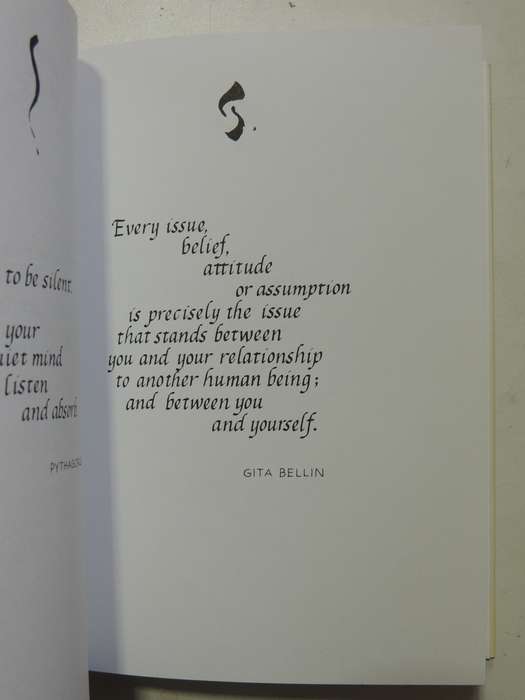 to be silent.
your
mind
listen
and absorb
Every issue,
belief,
attitude
or assumption
is precisely the issue
that stands between
you and your relationship
to another human being;
and between you
and yourself.
GITA BELLIN